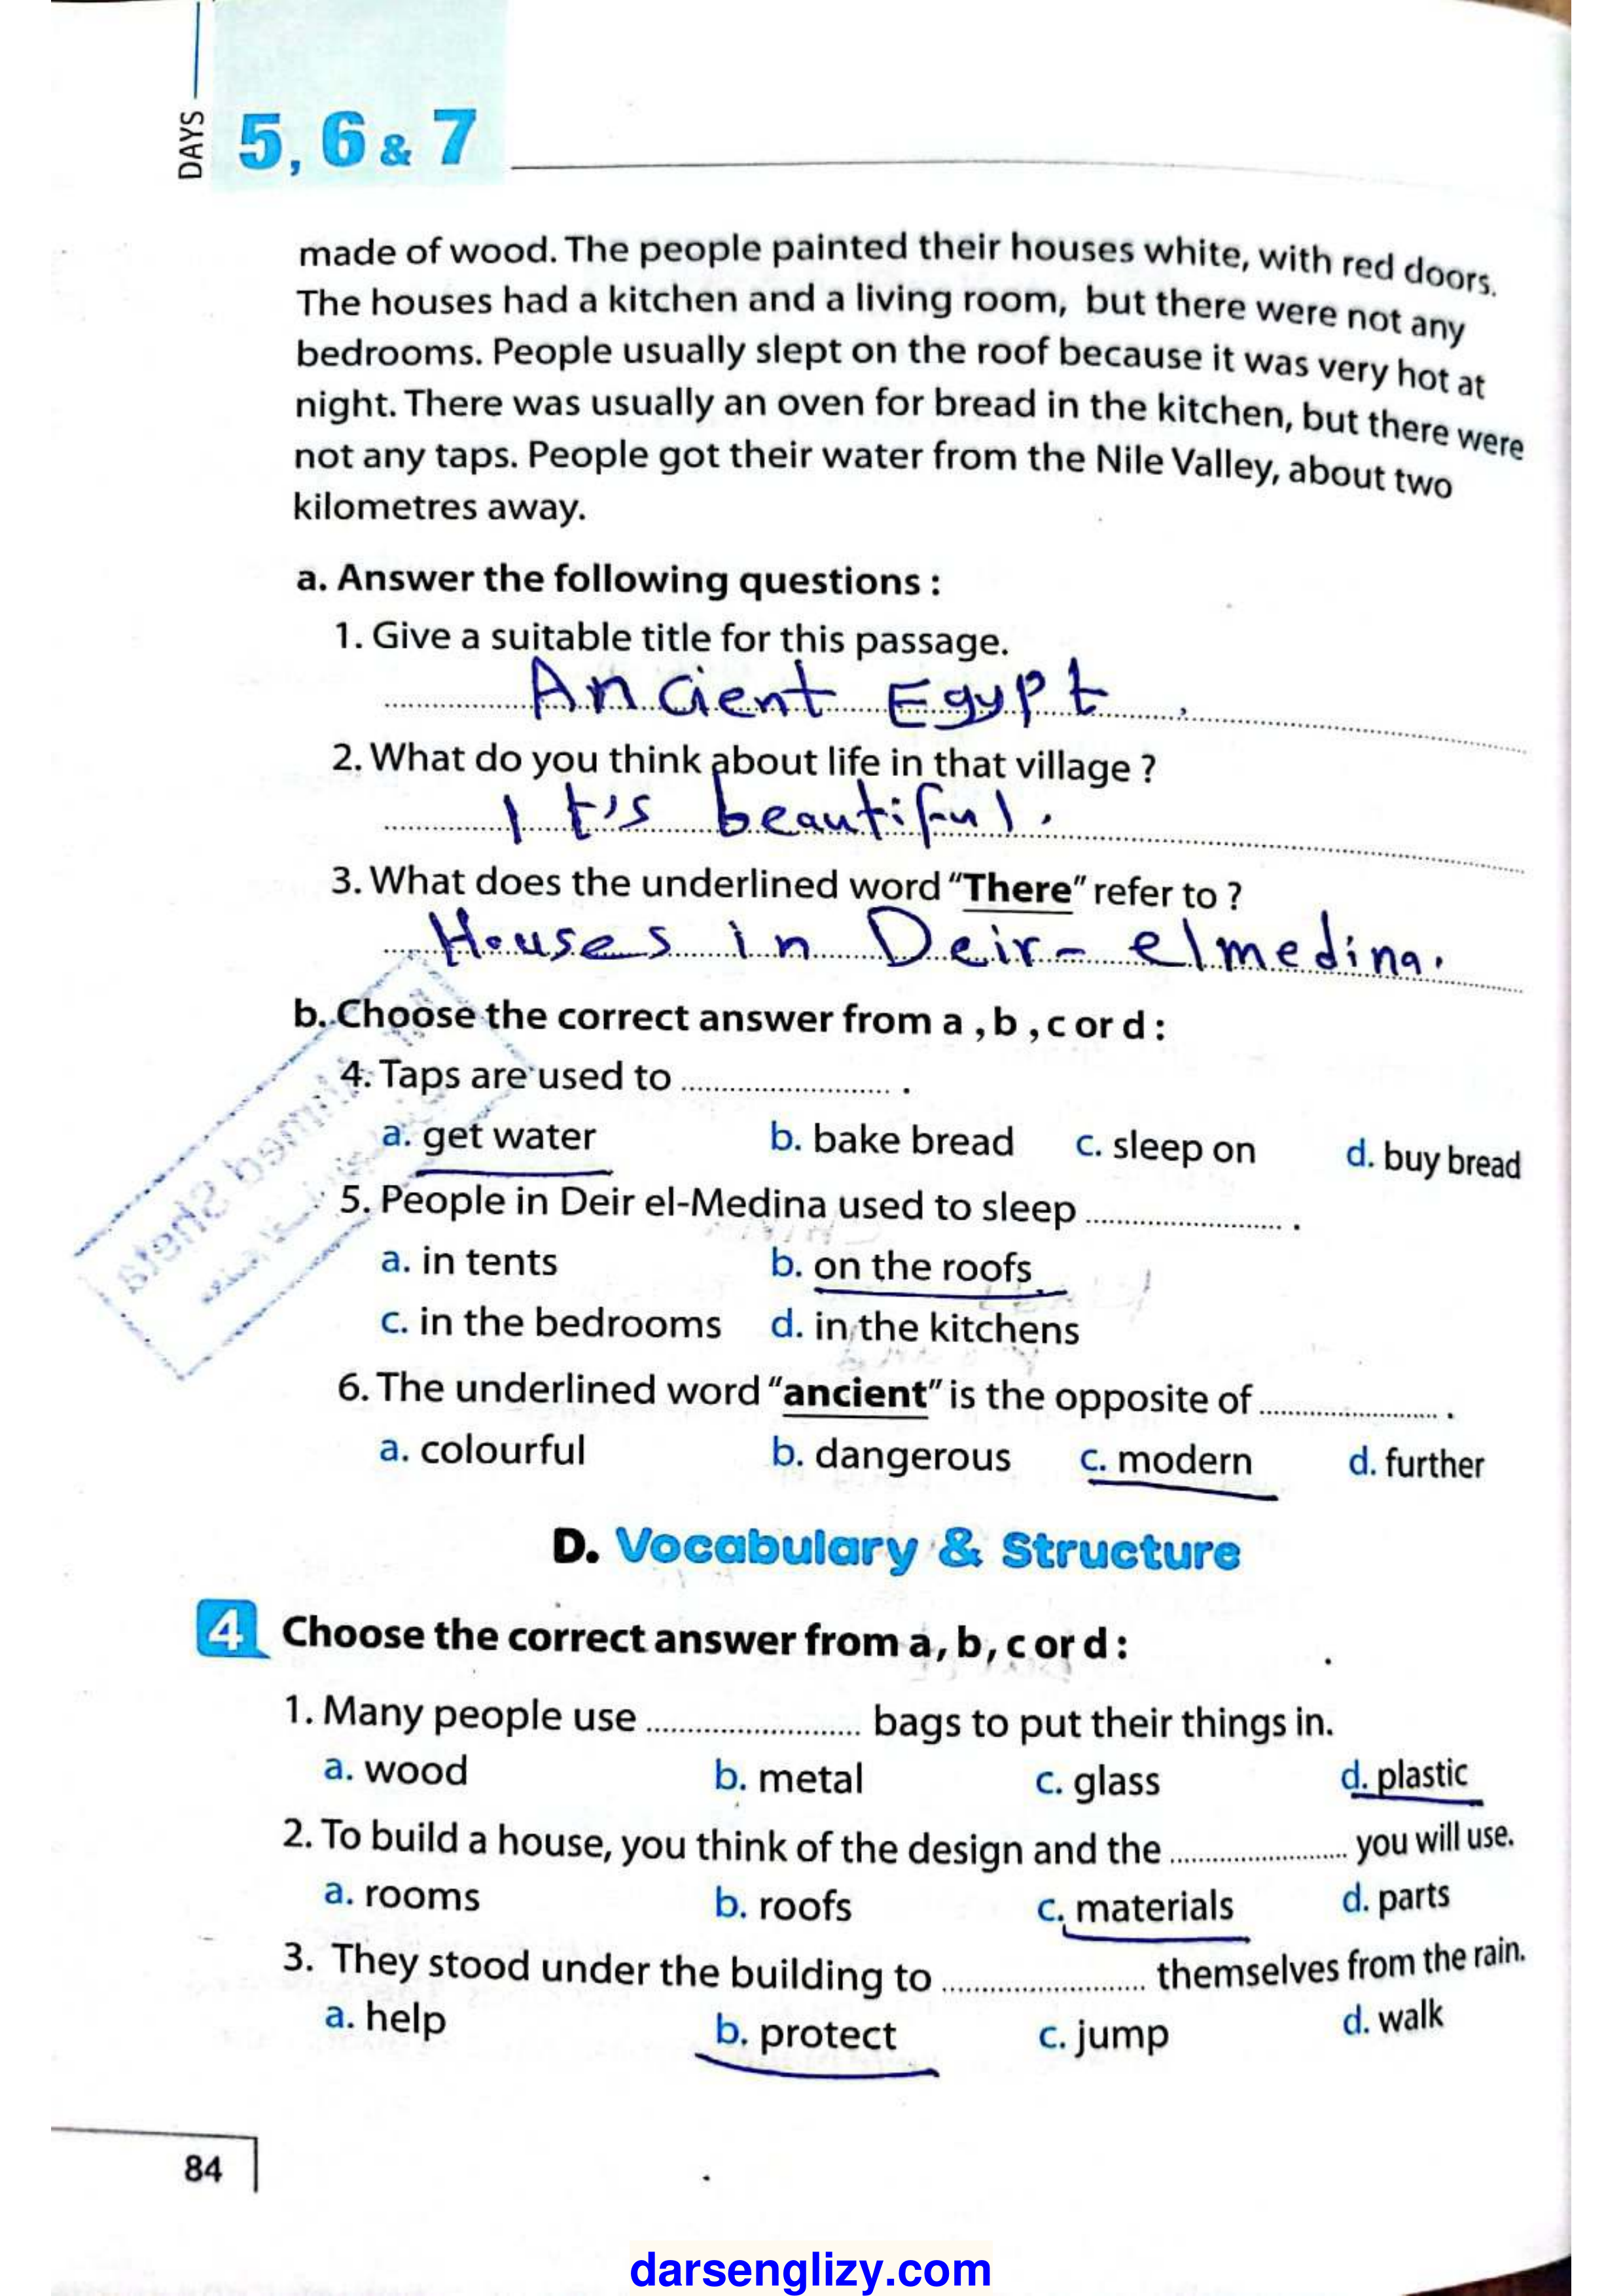 DAYS
5, 6 & 7
made of wood. The people painted their houses white, with red doors.
The houses had a kitchen and a living room, but there were not any
bedrooms. People usually slept on the roof because it was very hot at
night. There was usually an oven for bread in the kitchen, but there were
not any taps. People got their water from the Nile Valley, about two
kilometres away.
a. Answer the following questions :
1. Give a suitable title for this passage.
Ancient Egypt .
2. What do you think about life in that village ?
It's beautiful .
3. What does the underlined word “There” refer to ?
Houses in Deir- elmedina.
b. Choose the correct answer from a , b , c or d :
4. Taps are used to ........................ .
a. get water b. bake bread c. sleep on d. buy bread
5. People in Deir el-Medina used to sleep ........................ .
a. in tents b. on the roofs
c. in the bedrooms d. in the kitchens
6. The underlined word “ancient” is the opposite of ........................ .
a. colourful b. dangerous c. modern d. further
D. Vocabulary & Structure
4 Choose the correct answer from a , b , c or d :
1. Many people use ........................ bags to put their things in.
a. wood b. metal c. glass d. plastic
2. To build a house, you think of the design and the ........................ you will use.
a. rooms b. roofs c. materials d. parts
3. They stood under the building to ........................ themselves from the rain.
a. help b. protect c. jump d. walk
84
darsenglizy.com